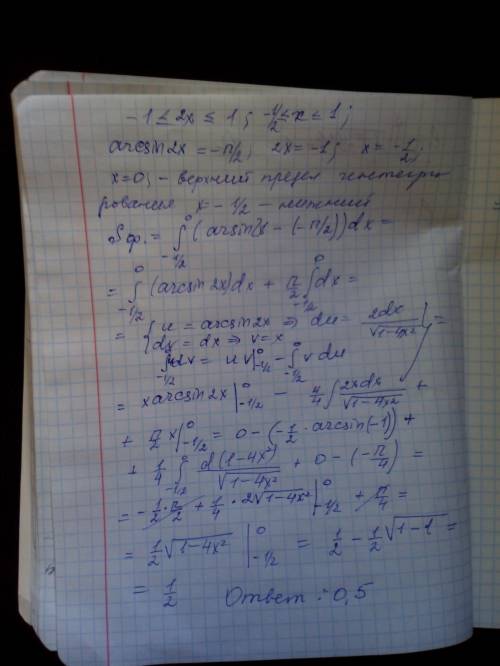 -1 ≤ 2x ≤ 1; -1/2 ≤ x ≤ 1;
arcsin2x = -π/2; 2x = -1; x = -1/2;
x=0; - верхний предел интегри
рования x - 1/2 - нижний
Sф. = ∫_{-1/2}^{0} (arsin2x - (-π/2))dx =
= ∫_{-1/2}^{0} (arcsin2x)dx + π/2 ∫_{-1/2}^{0} dx =
= { u = arcsin2x ⇒ du = 2dx/√(1-4x²) } =
dv = dx ⇒ v = x
∫_{-1/2}^{0} udv = uv|_{-1/2}^{0} - ∫_{-1/2}^{0} v du
= x arcsin2x |_{-1/2}^{0} - 4/4 ∫ 2xdx/√(1-4x²) +
+ π/2 x|_{-1/2}^{0} = 0 - (-1/2 · arcsin(-1)) +
+ 1/4 ∫_{-1/2}^{0} d(1-4x²)/√(1-4x²) + 0 - (-π/4) =
= -1/2 · π/2 + 1/4 · 2√(1-4x²) |_{-1/2}^{0} + π/4 =
= 1/2 √(1-4x²) |_{-1/2}^{0} = 1/2 - 1/2 √(1-1) =
= 1/2 Ответ: 0,5